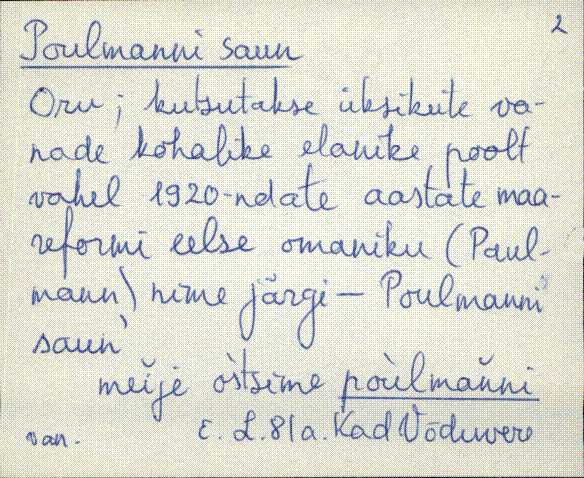 2
Poulmanni saun
Oru; kutsutakse üksikute va-
nade kohalike elanike poolt
vahel 1920-ndate aastate maa-
reformi eelse omaniku (Paul-
mann) nime järgi — Poulmanni
saun
meije òstsime pòùlmaňni
van. E. L. 81a. Kad Võduvere